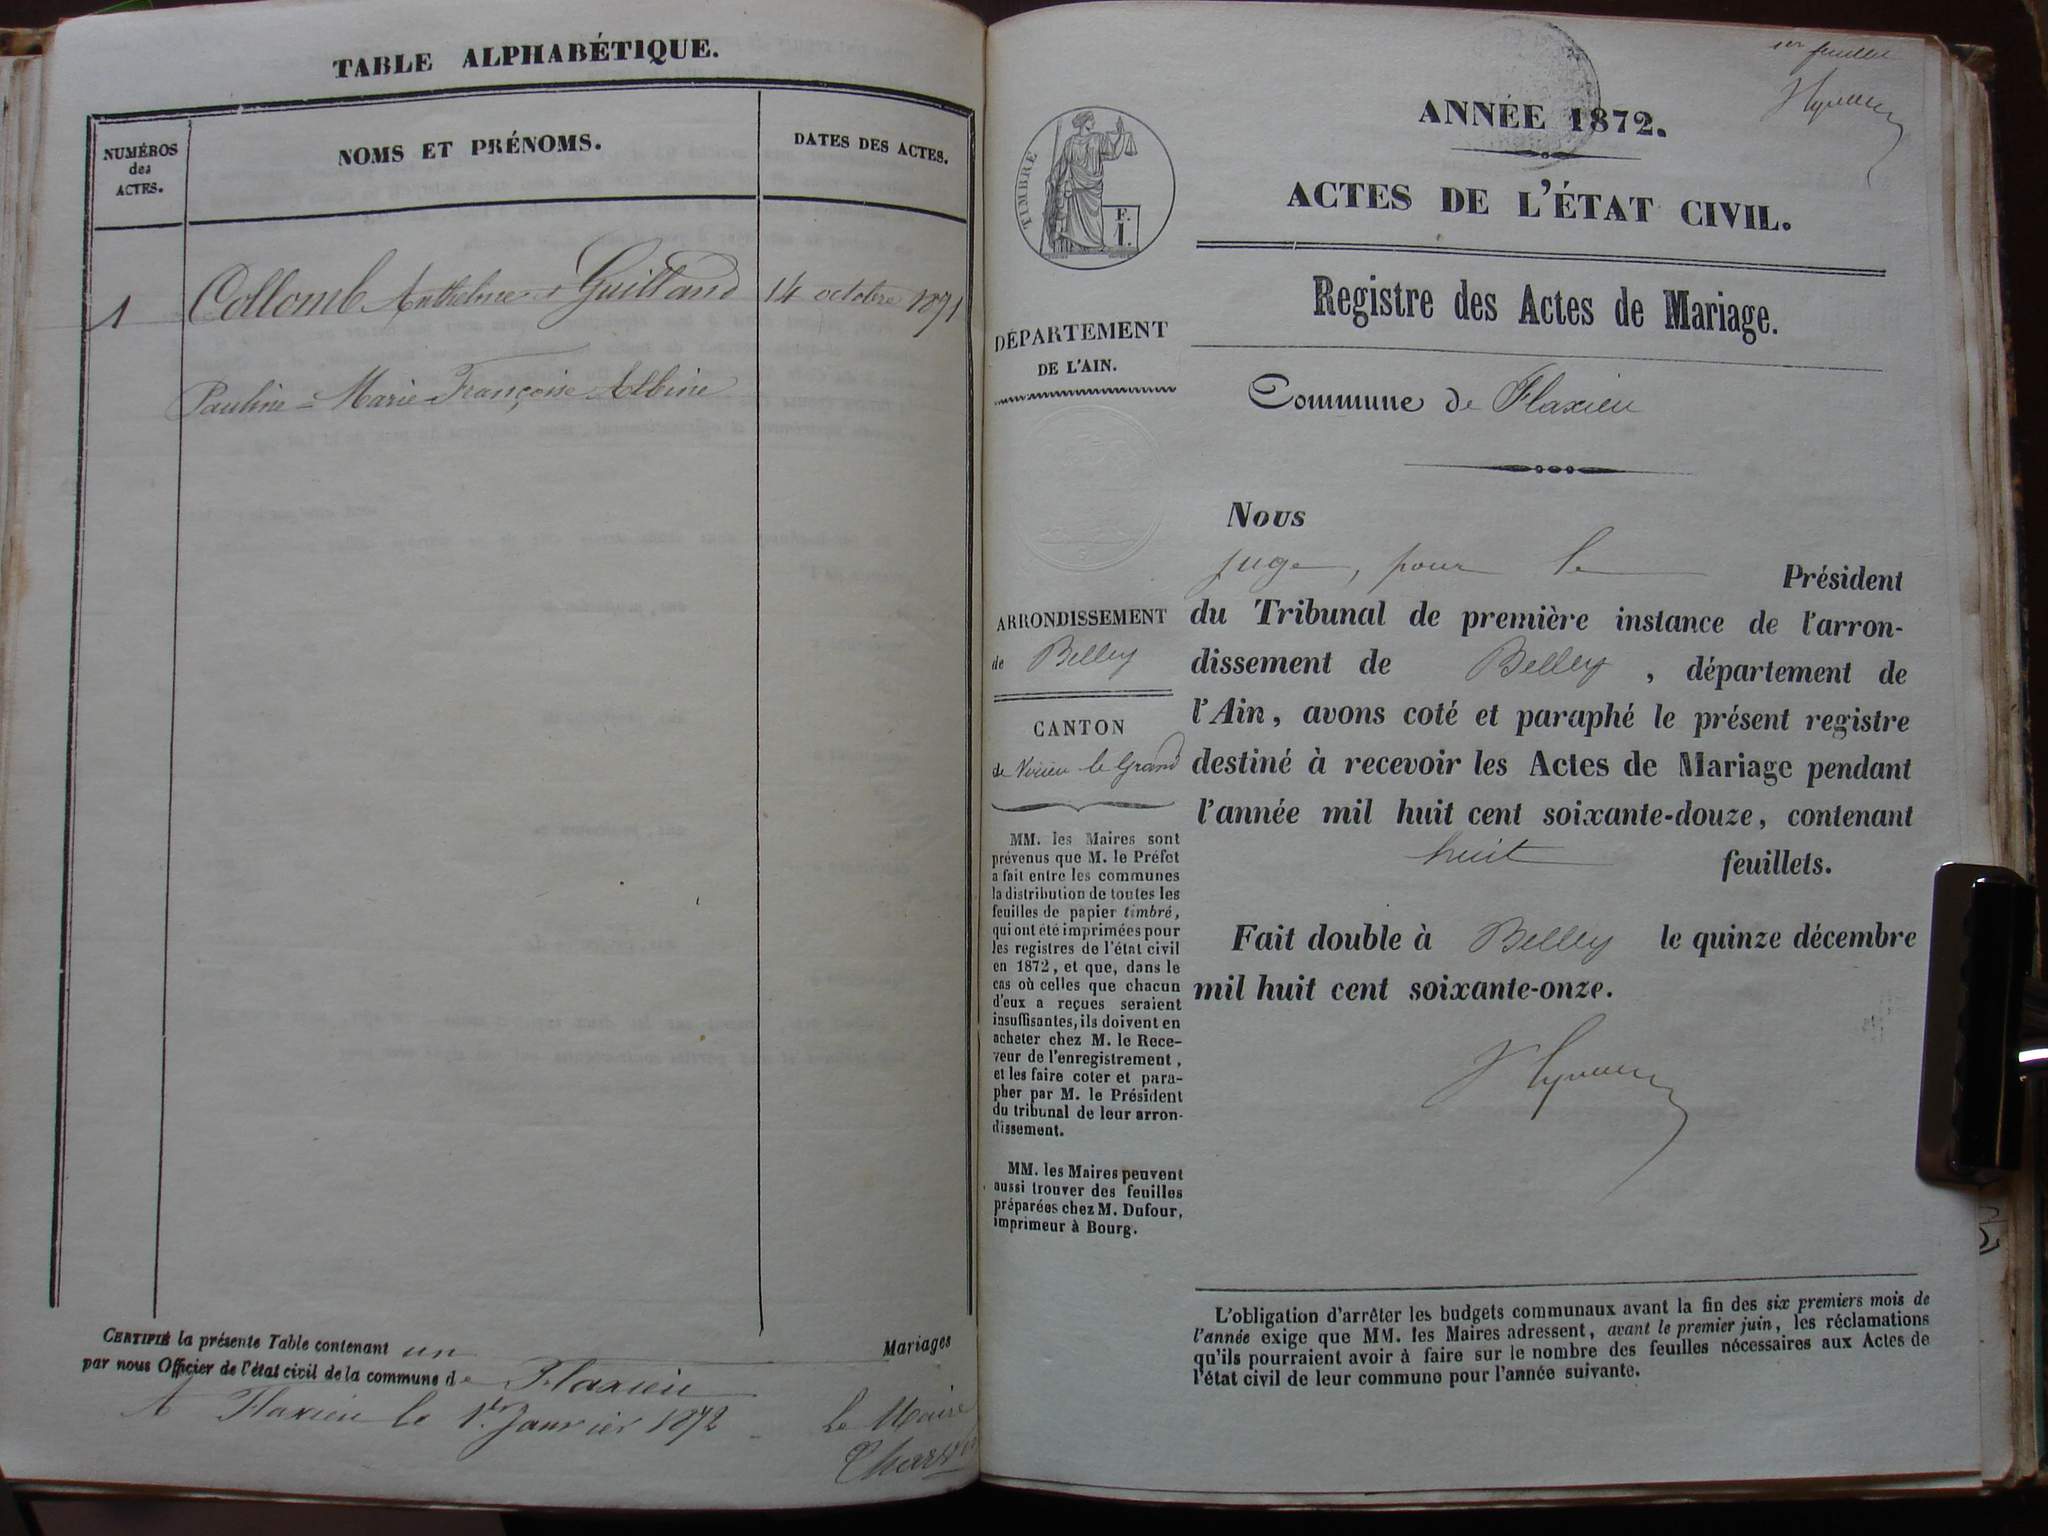 TABLE ALPHABÉTIQUE.
NUMÉROS
des
ACTES.
NOMS ET PRÉNOMS.
DATES DES ACTES.
1 Collomb Anthelme & Guilland 14 octobre 1871
Pauline = Marie Françoise Albine
CERTIFIÉ la présente Table contenant un Mariages
par nous Officier de l'état civil de la commune de Flaxieu
A Flaxieu le 1er Janvier 1872 le Maire
1er feuillet
ANNÉE 1872.
ACTES DE L'ÉTAT CIVIL.
TIMBRE
F.
I.
Registre des Actes de Mariage.
DÉPARTEMENT
DE L'AIN.
Commune de Flaxieu
ARRONDISSEMENT
de Belley
CANTON
de Virieu le Grand
MM. les Maires sont
prévenus que M. le Préfet
a fait entre les communes
la distribution de toutes les
feuilles de papier timbré,
qui ont été imprimées pour
les registres de l'état civil
en 1872, et que, dans le
cas où celles que chacun
d'eux a reçues seraient
insuffisantes, ils doivent en
acheter chez M. le Rece-
veur de l'enregistrement,
et les faire coter et para-
pher par M. le Président
du tribunal de leur arron-
dissement.
MM. les Maires peuvent
aussi trouver des feuilles
préparées chez M. Dufour,
imprimeur à Bourg.
Nous
juge, pour le Président
du Tribunal de première instance de l'arron-
dissement de Belley, département de
l'Ain, avons coté et paraphé le présent registre
destiné à recevoir les Actes de Mariage pendant
l'année mil huit cent soixante-douze, contenant
huit feuillets.
Fait double à Belley le quinze décembre
mil huit cent soixante-onze.
L'obligation d'arrêter les budgets communaux avant la fin des six premiers mois de
l'année exige que MM. les Maires adressent, avant le premier juin, les réclamations
qu'ils pourraient avoir à faire sur le nombre des feuilles nécessaires aux Actes de
l'état civil de leur commune pour l'année suivante.